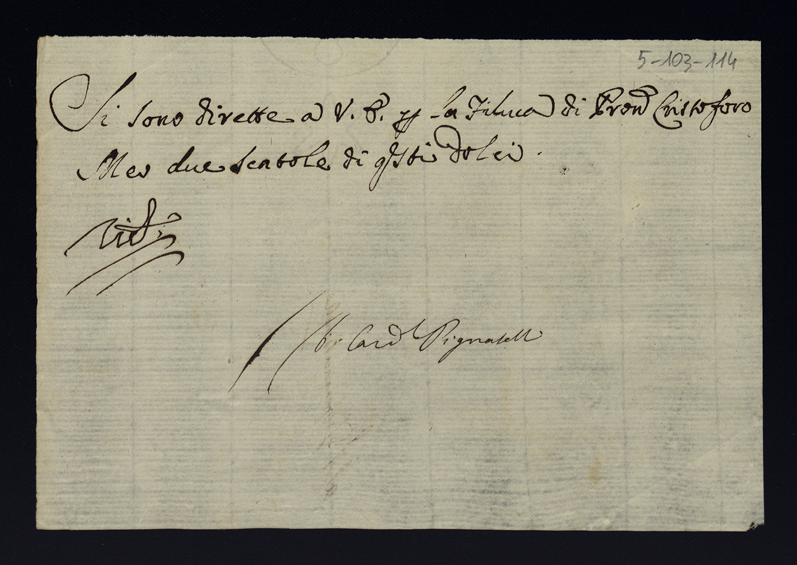 5-103-114
Si sono dirette a V. E. p la Filuca di Pron Cristoforo
Meo due scatole di qsti dolci.
Card Pignatelli